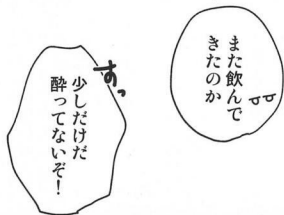 また飲んで
きたのか
すっ
少しだけだ
酔ってないぞ！